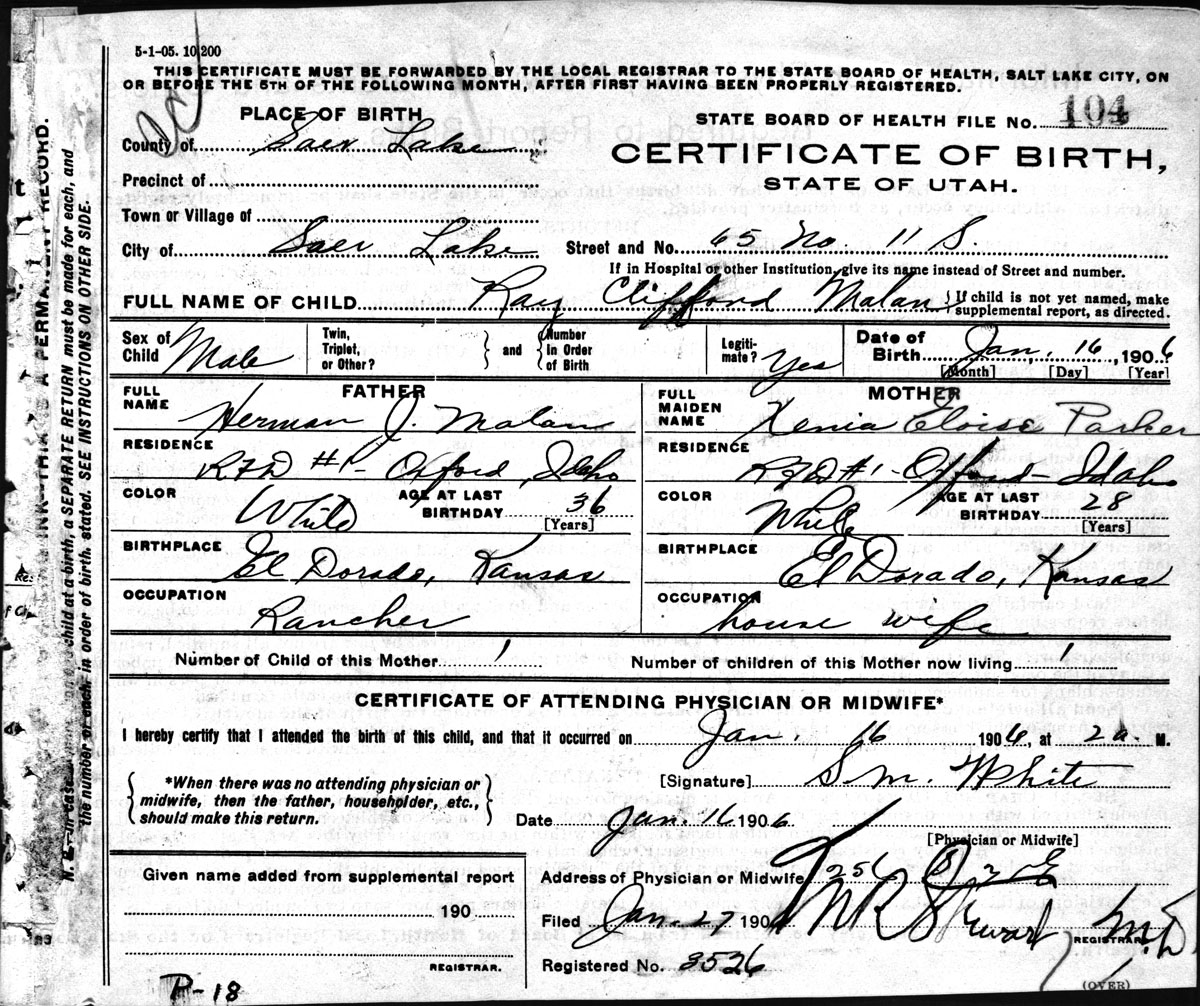 5-1-05. 10,200
THIS CERTIFICATE MUST BE FORWARDED BY THE LOCAL REGISTRAR TO THE STATE BOARD OF HEALTH, SALT LAKE CITY, ON
OR BEFORE THE 5TH OF THE FOLLOWING MONTH, AFTER FIRST HAVING BEEN PROPERLY REGISTERED.
PLACE OF BIRTH
STATE BOARD OF HEALTH FILE No. 104
County of Salt Lake
CERTIFICATE OF BIRTH,
STATE OF UTAH.
Precinct of
Town or Village of
City of Salt Lake Street and No. 65 No. 11 S.
If in Hospital or other Institution, give its name instead of Street and number.
FULL NAME OF CHILD Ray Clifford Malan } If child is not yet named, make supplemental report, as directed.
Sex of Child Male Twin, Triplet, or Other? } and { Number in Order of Birth Legiti-mate? Yes Date of Birth Jan. 16, 1906
[Month] [Day] [Year]
FATHER MOTHER
FULL NAME Herman J. Malan FULL MAIDEN NAME Xenia Eloise Parker
RESIDENCE RFD #1- Oxford, Idaho RESIDENCE RFD #1- Oxford- Idaho
COLOR White AGE AT LAST BIRTHDAY 36 [Years] COLOR White AGE AT LAST BIRTHDAY 28 [Years]
BIRTHPLACE El Dorado, Kansas BIRTHPLACE El Dorado, Kansas
OCCUPATION Rancher OCCUPATION house wife
Number of Child of this Mother 1 Number of children of this Mother now living 1
CERTIFICATE OF ATTENDING PHYSICIAN OR MIDWIFE*
I hereby certify that I attended the birth of this child, and that it occurred on Jan. 16 1906, at 2 a. M.
{ *When there was no attending physician or
midwife, then the father, householder, etc.,
should make this return. }
[Signature] S. M. White
Date Jan. 16 1906
[Physician or Midwife]
Given name added from supplemental report
190
REGISTRAR.
Address of Physician or Midwife 256
Filed Jan. 27 190 Stewart M.D.
REGISTRAR.
Registered No. 3526
P-18
(OVER)
N. B.—In case of more than one child at a birth, a SEPARATE RETURN must be made for each, and
the number of each, in order of birth, stated. SEE INSTRUCTIONS ON OTHER SIDE.
INK—THIS IS A PERMANENT RECORD.